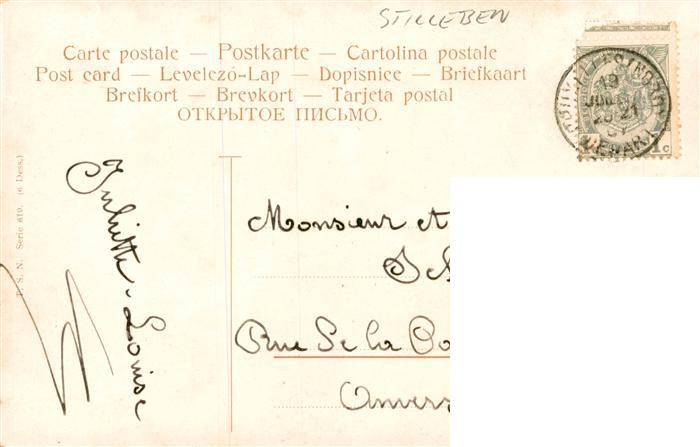 STILLEBEN
Carte postale — Postkarte — Cartolina postale
Post card — Levelező-Lap — Dopisnice — Briefkaart
Brefkort — Brevkort — Tarjeta postal
ОТКРЫТОЕ ПИСЬМО.
1c
T. S. N. Serie 819. (6 Dess.)
Juliette-Louise
Monsieur et
Rue De la
Anvers